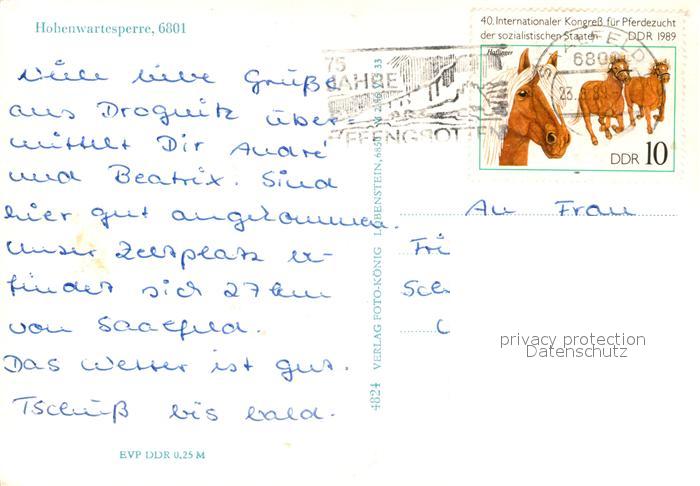 Hohenwartesperre, 6801
Viele liebe Grüße
aus Drognitz über-
mittelt Dir André
und Beatrix. Sind
hier gut angekommen.
Unser Zeltplatz be-
findet sich 27 km
von Saalfeld.
Das Wetter ist gut.
Tschüß bis bald.
EVP DDR 0,25 M
4824 VERLAG FOTO-KÖNIG LOBENSTEIN, 685
33
75
JAHRE
FEENGROTTEN
40. Internationaler Kongreß für Pferdezucht
der sozialistischen Staaten DDR 1989
Haflinger
SAALFELD
6800
23
DDR 10
An Frau
Fri
Sch
privacy protection
Datenschutz